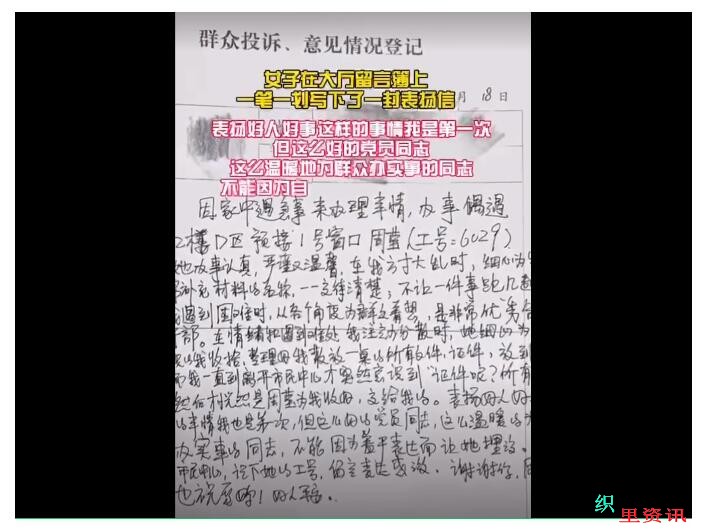 群众投诉、意见情况登记
女子在大厅留言簿上
一笔一划写下了一封表扬信
月 18日
表扬好人好事这样的事情我是第一次
但这么好的党员同志
这么温暖地为群众办实事的同志
不能因为自
因家中遇急事来办理事情,办事偶遇
2楼D区预接1号窗口周莹(工号:6029)
她办事认真,严谨又温馨,在我方寸大乱时,细心为
补充材料的名称,一一交待清楚,不让一件事跑几趟
遇到困难时,从各个角度为群众着想,是非常优秀
部。在情绪和遇到难处我注意力分散时,她细心为
我收拾,整理好我散放一桌的所有文件,证件,放到
而我一直到离开市民中心才突然意识到"证件呢?所有
然后才恍然是周莹为我收好,交给我的。表扬好人好
的事情我也是第一次,但这么好的党员同志,这么温暖的为
办实事的同志,不能因为羞于表达而让她埋没。
市民中心,记下她的工号,留言表达感激。谢谢你,周
也祝贵
织
里资讯